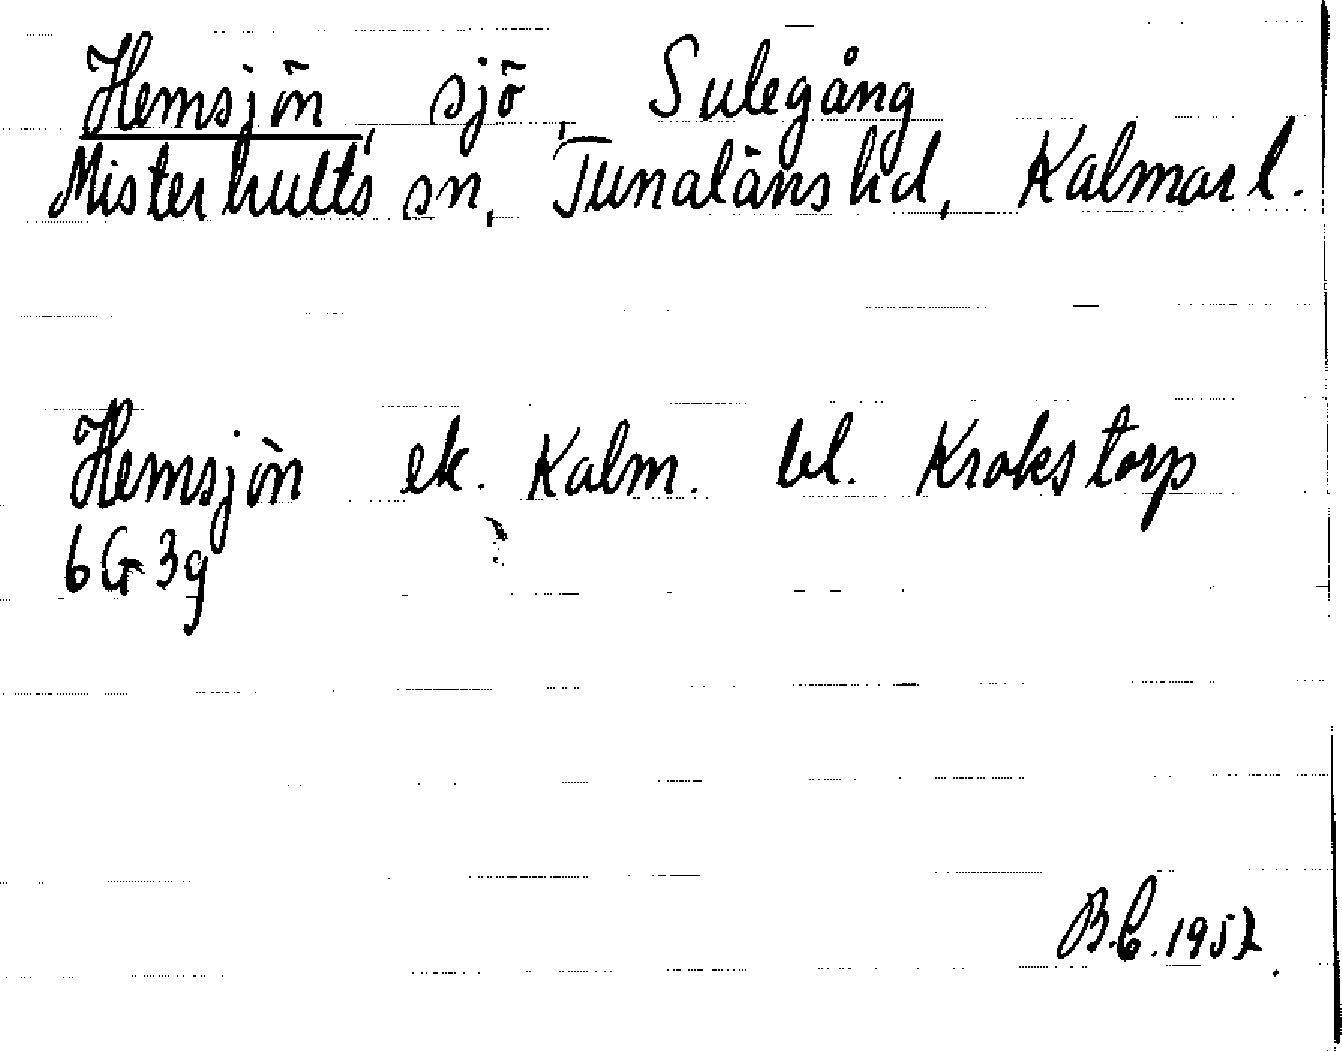 Hemsjön, sjö, Sulegång
Misterhults sn, Tunaläns hd, Kalmar l.
Hemsjön ek. Kalm. bl. Krokstorp
6G 3g
B.C. 1952.